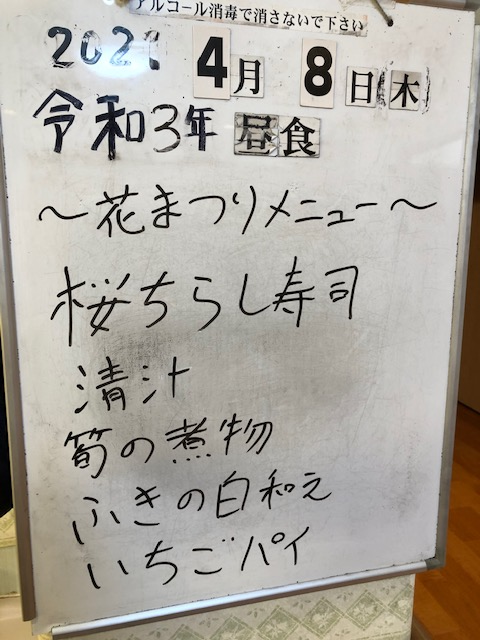 アルコール消毒で消さないで下さい
2021 4月 8日(木)
令和3年 昼食
～花まつりメニュー～
桜ちらし寿司
清汁
筍の煮物
ふきの白和え
いちごパイ